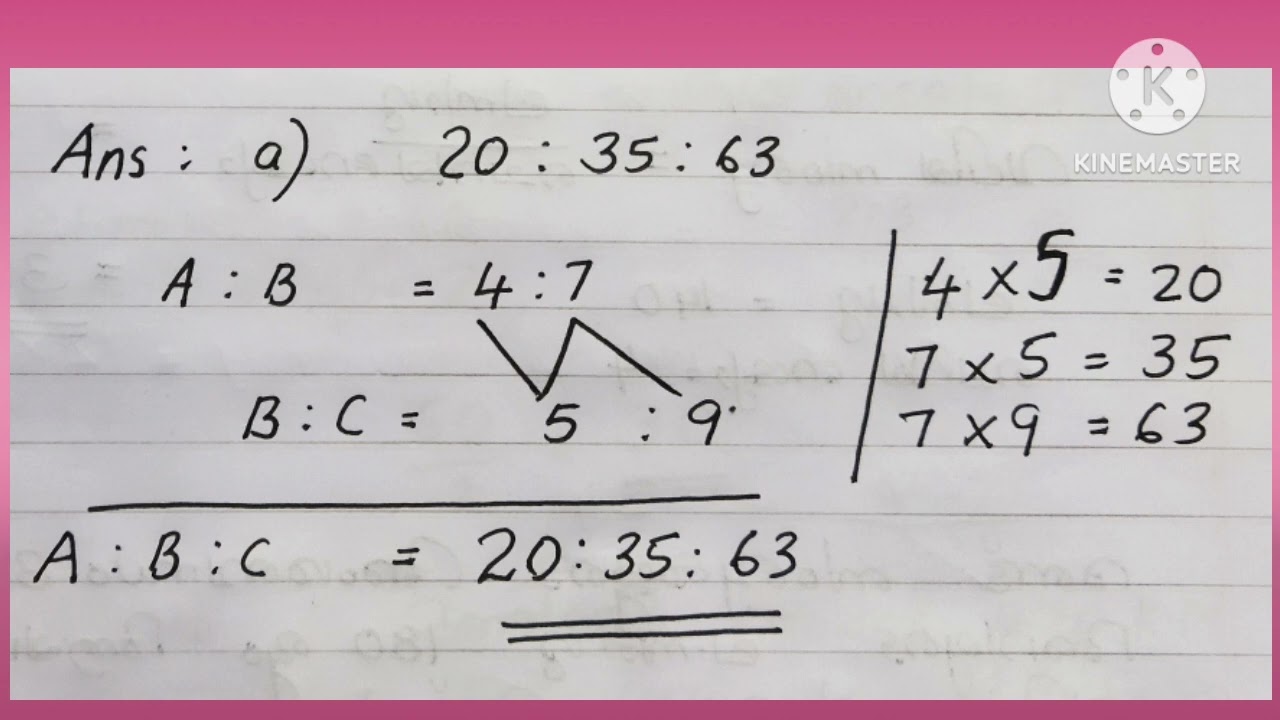 K
KINEMASTER
Ans : a) 20 : 35 : 63
A : B = 4 : 7
B : C = 5 : 9
A : B : C = 20 : 35 : 63
4 x 5 = 20
7 x 5 = 35
7 x 9 = 63